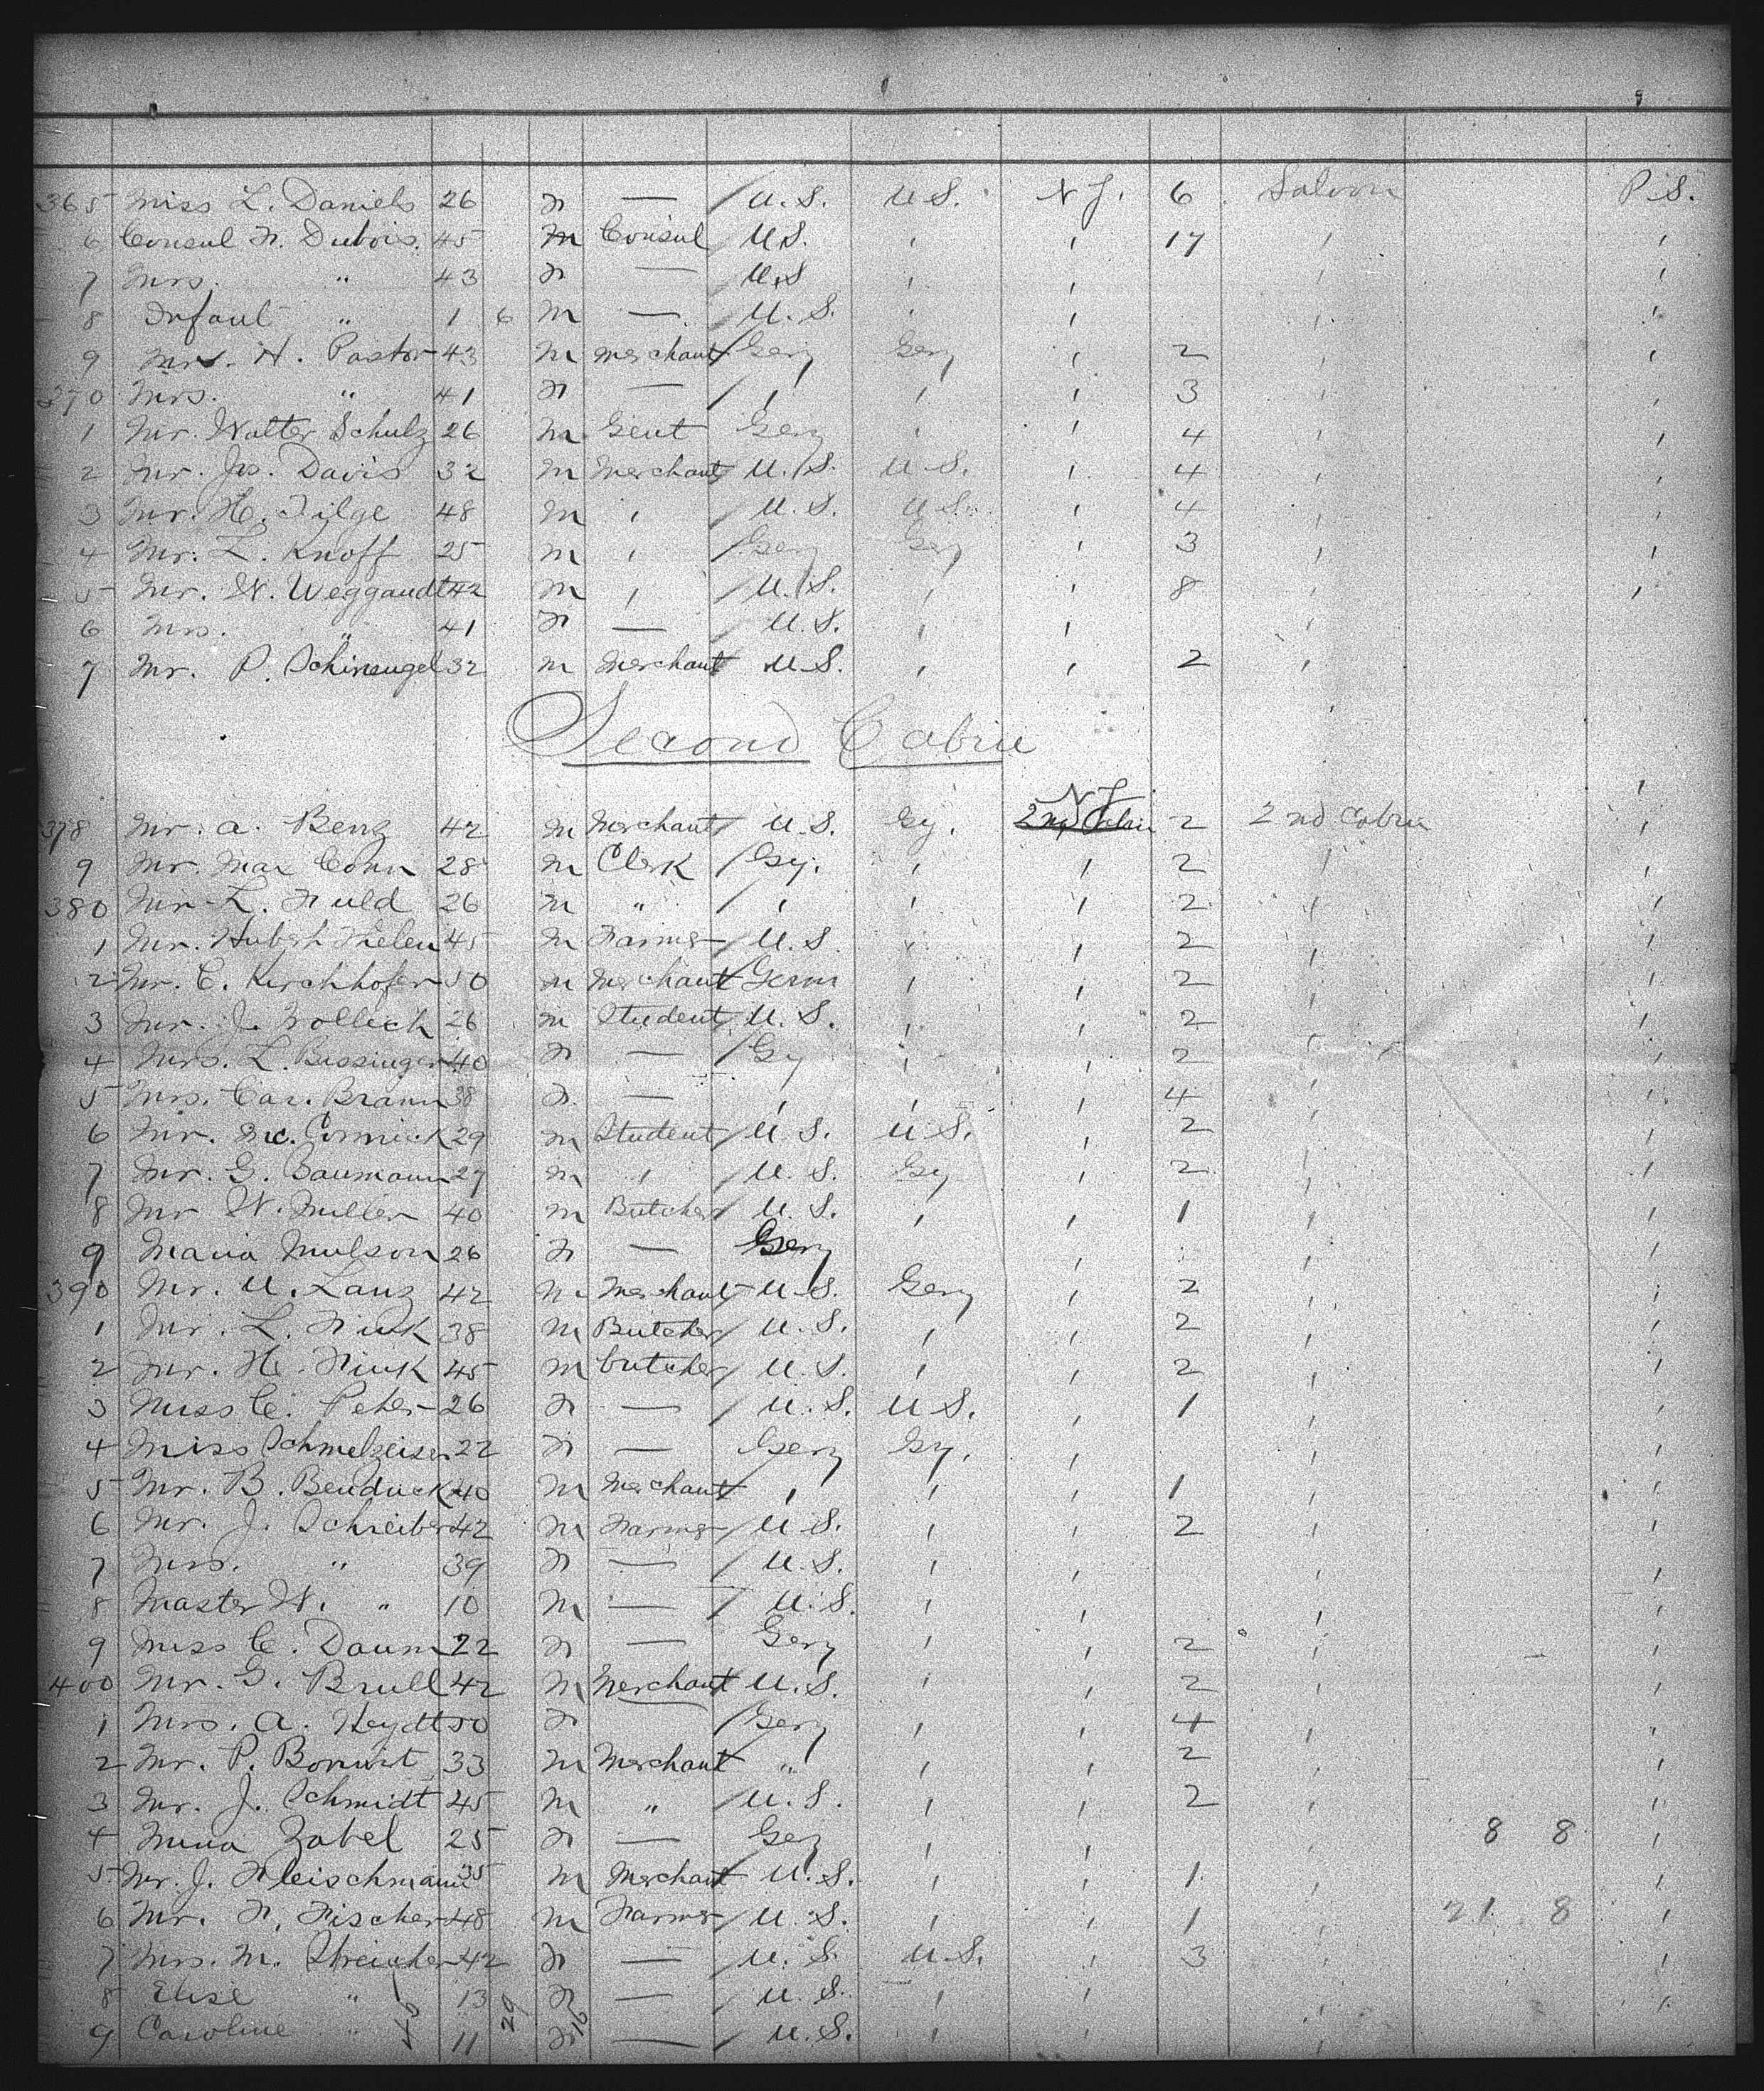 365 Miss L. Daniels 26 F — / U.S. U.S. N Y. 6 Saloon P.S.
6 Consul F. Dubois. 45 M Consul / U.S. " " 17 " "
7 Mrs. " 43 F — / U.S " " " "
8 Infant " 1 6 M — / U.S. " " " "
9 Mr. H. Pastor 43 M Merchant / Gery Gery " 2 " "
370 Mrs. " 41 F — / " " " 3 " "
1 Mr. Walter Schulz 26 M Gent Gery " " 4 " "
2 Mr. Js. Davis 32 M Merchant / U.S. U.S. " 4 " "
3 Mr. H. Tilge 48 M " / U.S. U.S. " 4 " "
4 Mr. L. Knoff 25 M " / Gery Gery " 3 " "
5 Mr. W. Weggandt 42 M " / U.S. " " 8 " "
6 Mrs. " 41 F — U.S. " " "
7 Mr. P. 32 M Merchant U.S. " " 2 "
Second Cabin
378 Mr. A. Benz 42 M Merchant / U.S. Gy. N Y 2 2nd Cabin "
9 Mr. Max Conn 28 M Clerk / Gy. " " 2 " "
380 Mr. L. Fuld 26 M " / " " " 2 " "
1 Mr. Thelen 45 M Farmer / U.S. " " 2 " "
2 Mr. C. Kirchhofer 50 M Merchant / Germ " " 2 " "
3 Mr. J. Zollich 26 M Student / U.S. " " 2 " "
4 Mrs. L. Bassinger 40 F — / Gy " " 2 " "
5 Mrs. Car. Braun 38 F — " " " 4 " "
6 Mr. Mc. Cormick 29 M Student / U.S. U.S. " 2 " "
7 Mr. G. Baumann 27 M " / U.S. Gy " 2 " "
8 Mr W. Miller 40 M Butcher / U.S. " " 1 " "
9 Maria Mulson 26 F — Gery " " "
390 Mr. U. Lanz 42 M Merchant U.S. Gery " 2 " "
1 Mr. L. Fink 38 M Butcher / U.S. " " 2 " "
2 Mr. H. Fink 45 M butcher / U.S. " " 2 " "
3 Miss C. Peter 26 F — / U.S. U.S. " 1 " "
4 Miss Schmelzeisen 22 F — Gery Gy. " " "
5 Mr. B. 40 M Merchant " " " 1 " "
6 Mr. J. Schreiber 42 M Farmer / U.S. " " 2 " "
7 Mrs. " 39 F — / U.S. " " " "
8 Master W. " 10 M — / U.S. " " " "
9 Miss C. Daum 22 F — Gery " " 2 " "
400 Mr. G. Brull 42 M Merchant U.S. " " 2 " "
1 Mrs. A. Heydt 50 F / Gery " " 4 " "
2 Mr. P. Bonwit 33 M Merchant " " " 2 " "
3 Mr. J. Schmidt 45 M " / U.S. " " 2 " "
4 Mina Zabel 25 F — Gey " " " 8 8 "
5 Mr. J. Fleischmann 35 M Merchant U.S. " " 1 " "
6 Mr. F. Fischer 48 M Farmer / U.S. " " 1 " 21 8 "
7 Mrs. M. Streicher 42 F — / U.S. U.S. " 3 " "
8 Elise " 13 F — / U.S. " " " "
9 Caroline " 11 29 F 16 — U.S. " " " "